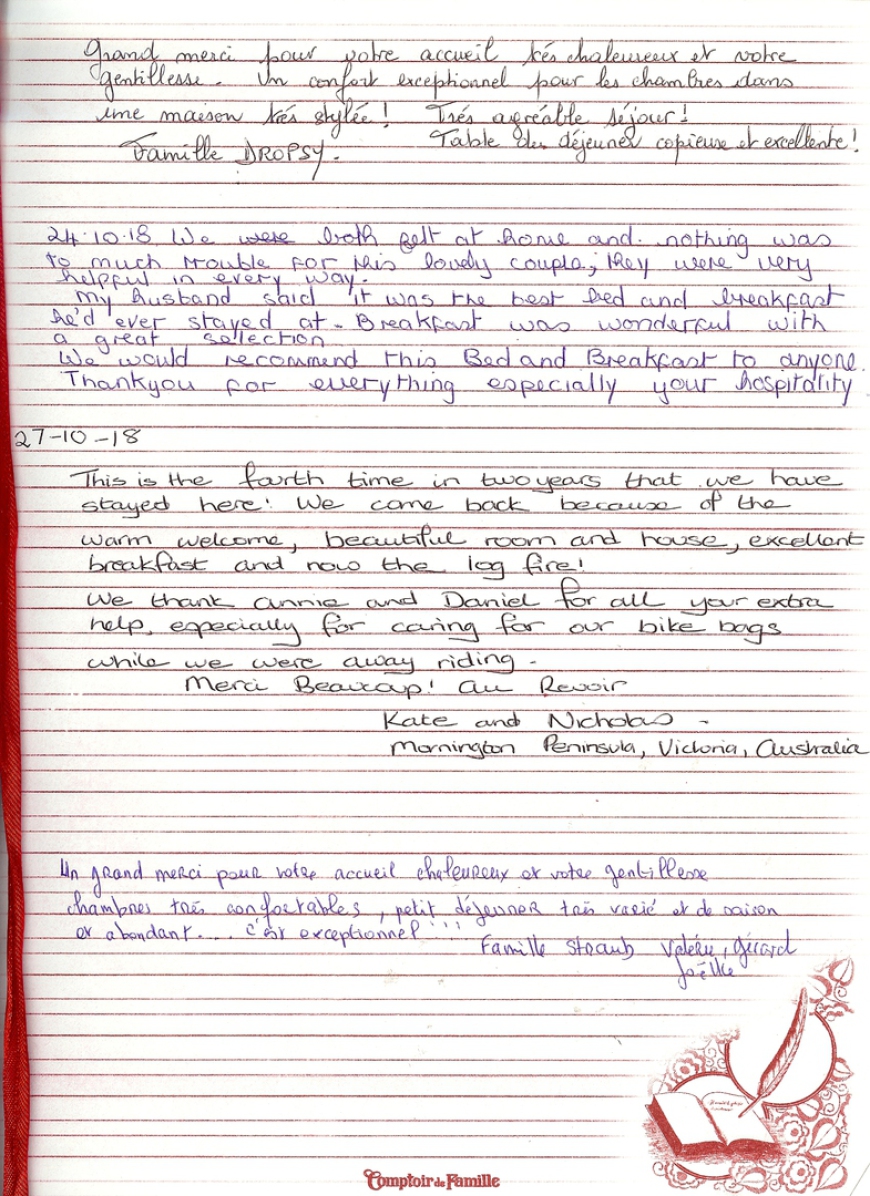 Grand merci pour votre accueil trés chaleureux et votre
gentillesse. Un confort exceptionnel pour les chambres dans
une maison trés stylée! Trés agréable séjour!
Famille DROPSY. Table du déjeuner copieuse et excellente!
24.10.18 We were both felt at home and. nothing was
to much trouble for this lovely couple; they were very
helpful in every way.
My husband said it was the best bed and breakfast
he'd ever stayed at. Breakfast was wonderful with
a great selection
We would recommend this Bed and Breakfast to anyone.
Thankyou for everything especially your hospitality
27-10-18
This is the fourth time in two years that we have
stayed here! We came back because of the
warm welcome, beautiful room and house, excellent
breakfast and now the log fire!
We thank annie and Daniel for all your extra
help, especially for caring for our bike bags
while we were away riding.
Merci Beaucoup! au Revoir
Kate and Nicholas -
Mornington Peninsula, Victoria, Australia
Un grand merci pour votre accueil chaleureux et votre gentillesse
chambres très confortables, petit déjeuner très varié et de saison
et abondant.... c'est exceptionnel!!!
Famille Straub Valérie, Gérard
Joëlle
Comptoir de Famille